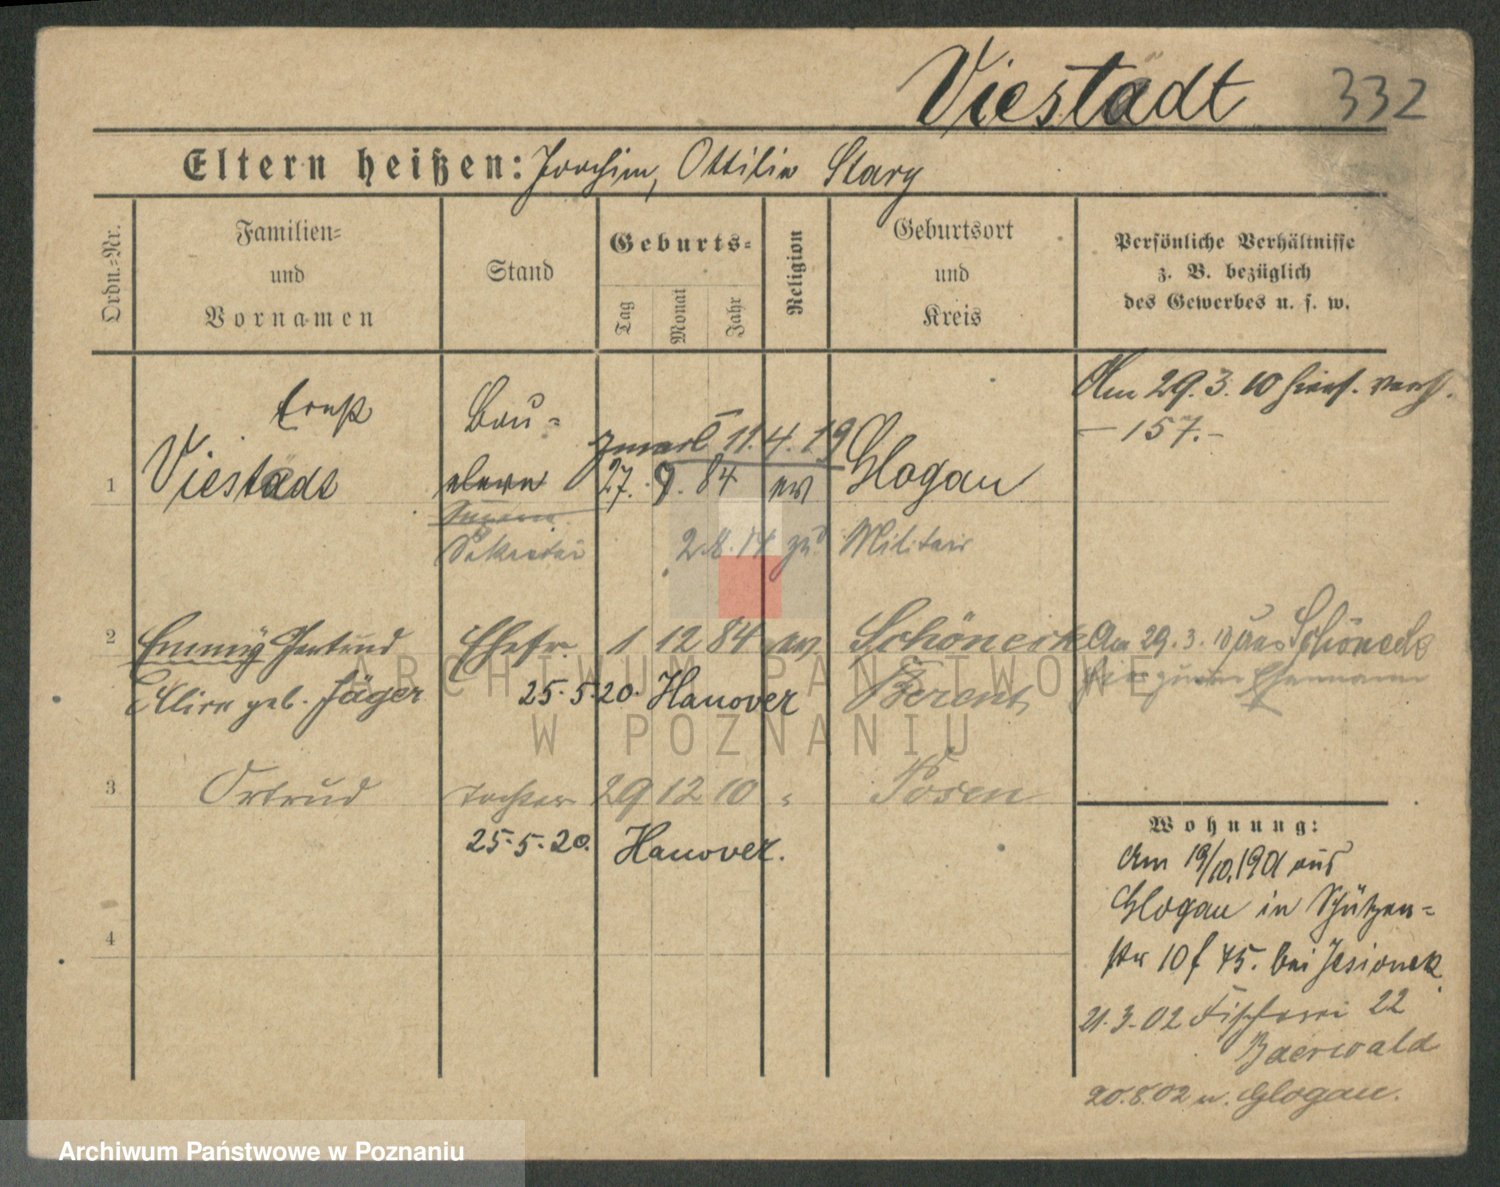 Viestädt 332
Eltern heißen: Joachim, Ottilie Stary
Ordn.=Nr.
Familien=
und
Vornamen
Stand
Geburts=
Tag
Monat
Jahr
Religion
Geburtsort
und
Kreis
Persönliche Verhältnisse
z. B. bezüglich
des Gewerbes u. s. w.
Am 29.3.10
- 157.-
Ernst
Bau=
11.4.19
1 Viestädt
27. 9. 84 ev Glogau
Sekretär 2.8.14 zum Militär
2 Emmy Gertrud Ehefr. 1 12 84 ev Schöneck Am 29.3.10 aus Schöneck
geb. Jäger 25.5.20. Hanover Berent
Ehemann
3 Ortrud Tochter 29 12 10 " Posen
25.5.20. Hanover.
4
Wohnung:
Am 19/10.1901 aus
Glogau in Schützen=
str 10 f 45. bei Jesionek.
21.3.02 Fischerei 22
Baerwald
20.8.02 n. Glogau.
ARCHIWUM PAŃSTWOWE
W POZNANIU
Archiwum Państwowe w Poznaniu